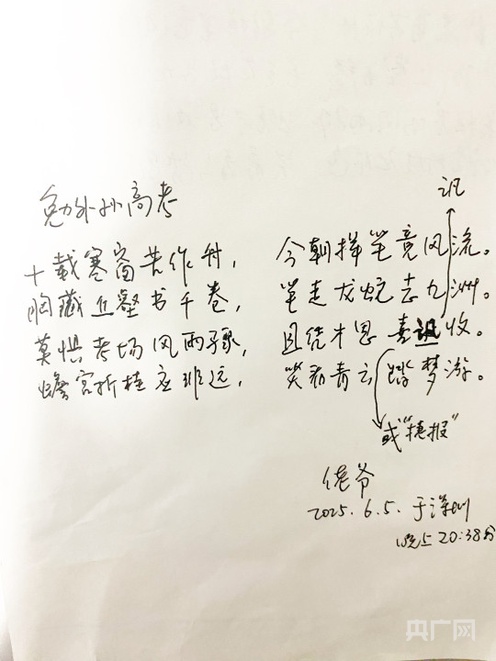 讯
勉外孙高考
十载寒窗苦作舟，今朝挥笔竞风流。
胸藏丘壑书千卷，笔走龙蛇九洲。
莫惧考场风雨骤，且才思喜讯收。
蟾宫折桂应非远，笑看青云踏梦游。
或"捷报"
佬爷
2025.6.5.于深圳
晚上20:38分
央广网